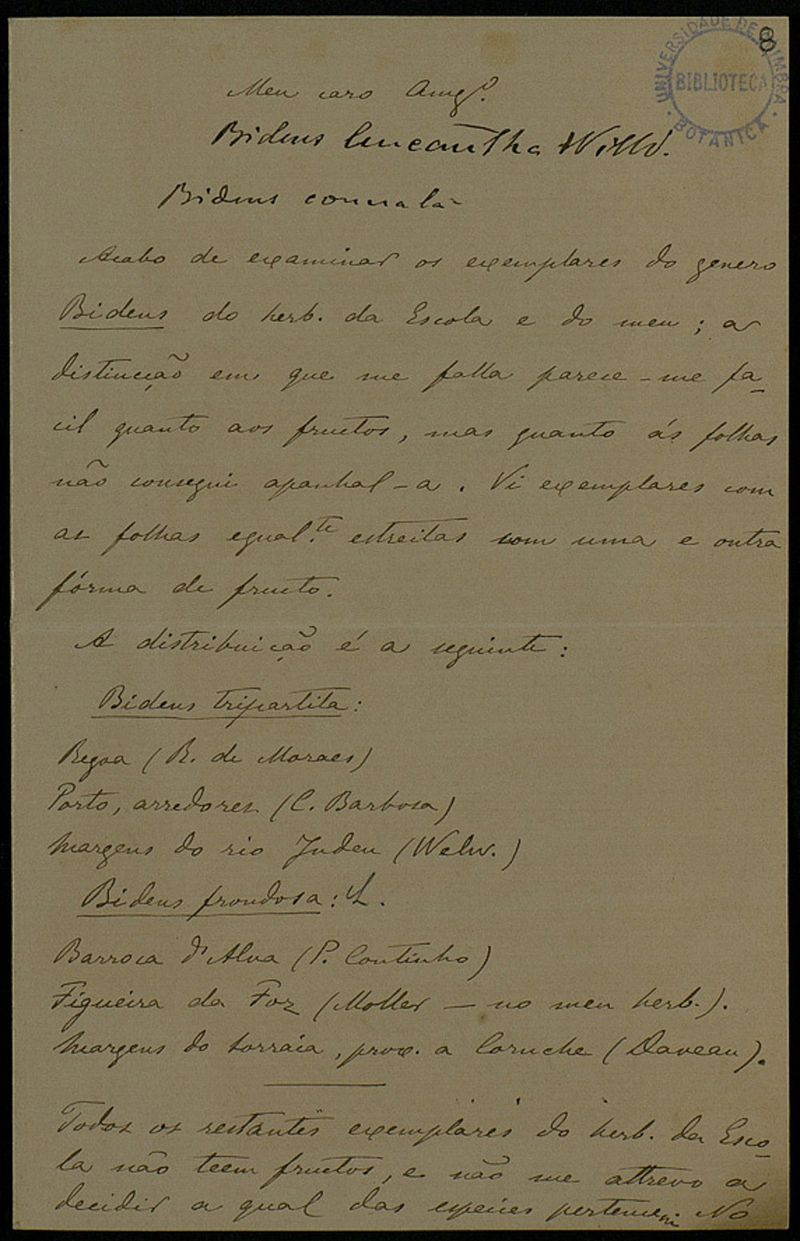 8
UNIVERSIDADE DE COIMBRA
BIBLIOTECA
BOTANICA
Meu caro Amgo.
Bidens leucantha Willd.
Bidens connata
Acabo de examinar os exemplares do genero
Bidens do herb. da Escola e do meu; a
distincção em que me falla parece-me fa-
cil quanto aos fructos, mas quanto ás folhas
não consegui apanhal-a. Vi exemplares com
as folhas egual.te estreitas com uma e outra
fórma de fructo.
A distribuição é a seguinte:
Bidens tripartita:
Regoa (R. de Moraes)
Porto, arredores (C. Barbosa)
Margens do rio Judeu (Welw.)
Bidens frondosa: L.
Barroca d'Alva (P. Coutinho)
Figueira da Foz (Moller — no meu herb.).
Margens do Sorraia, prox. a Coruche (Daveau).
Todos os restantes exemplares do herb. da Esco-
la não teem fructos, e não me attrevo a
decidir a qual das especies pertencem. No